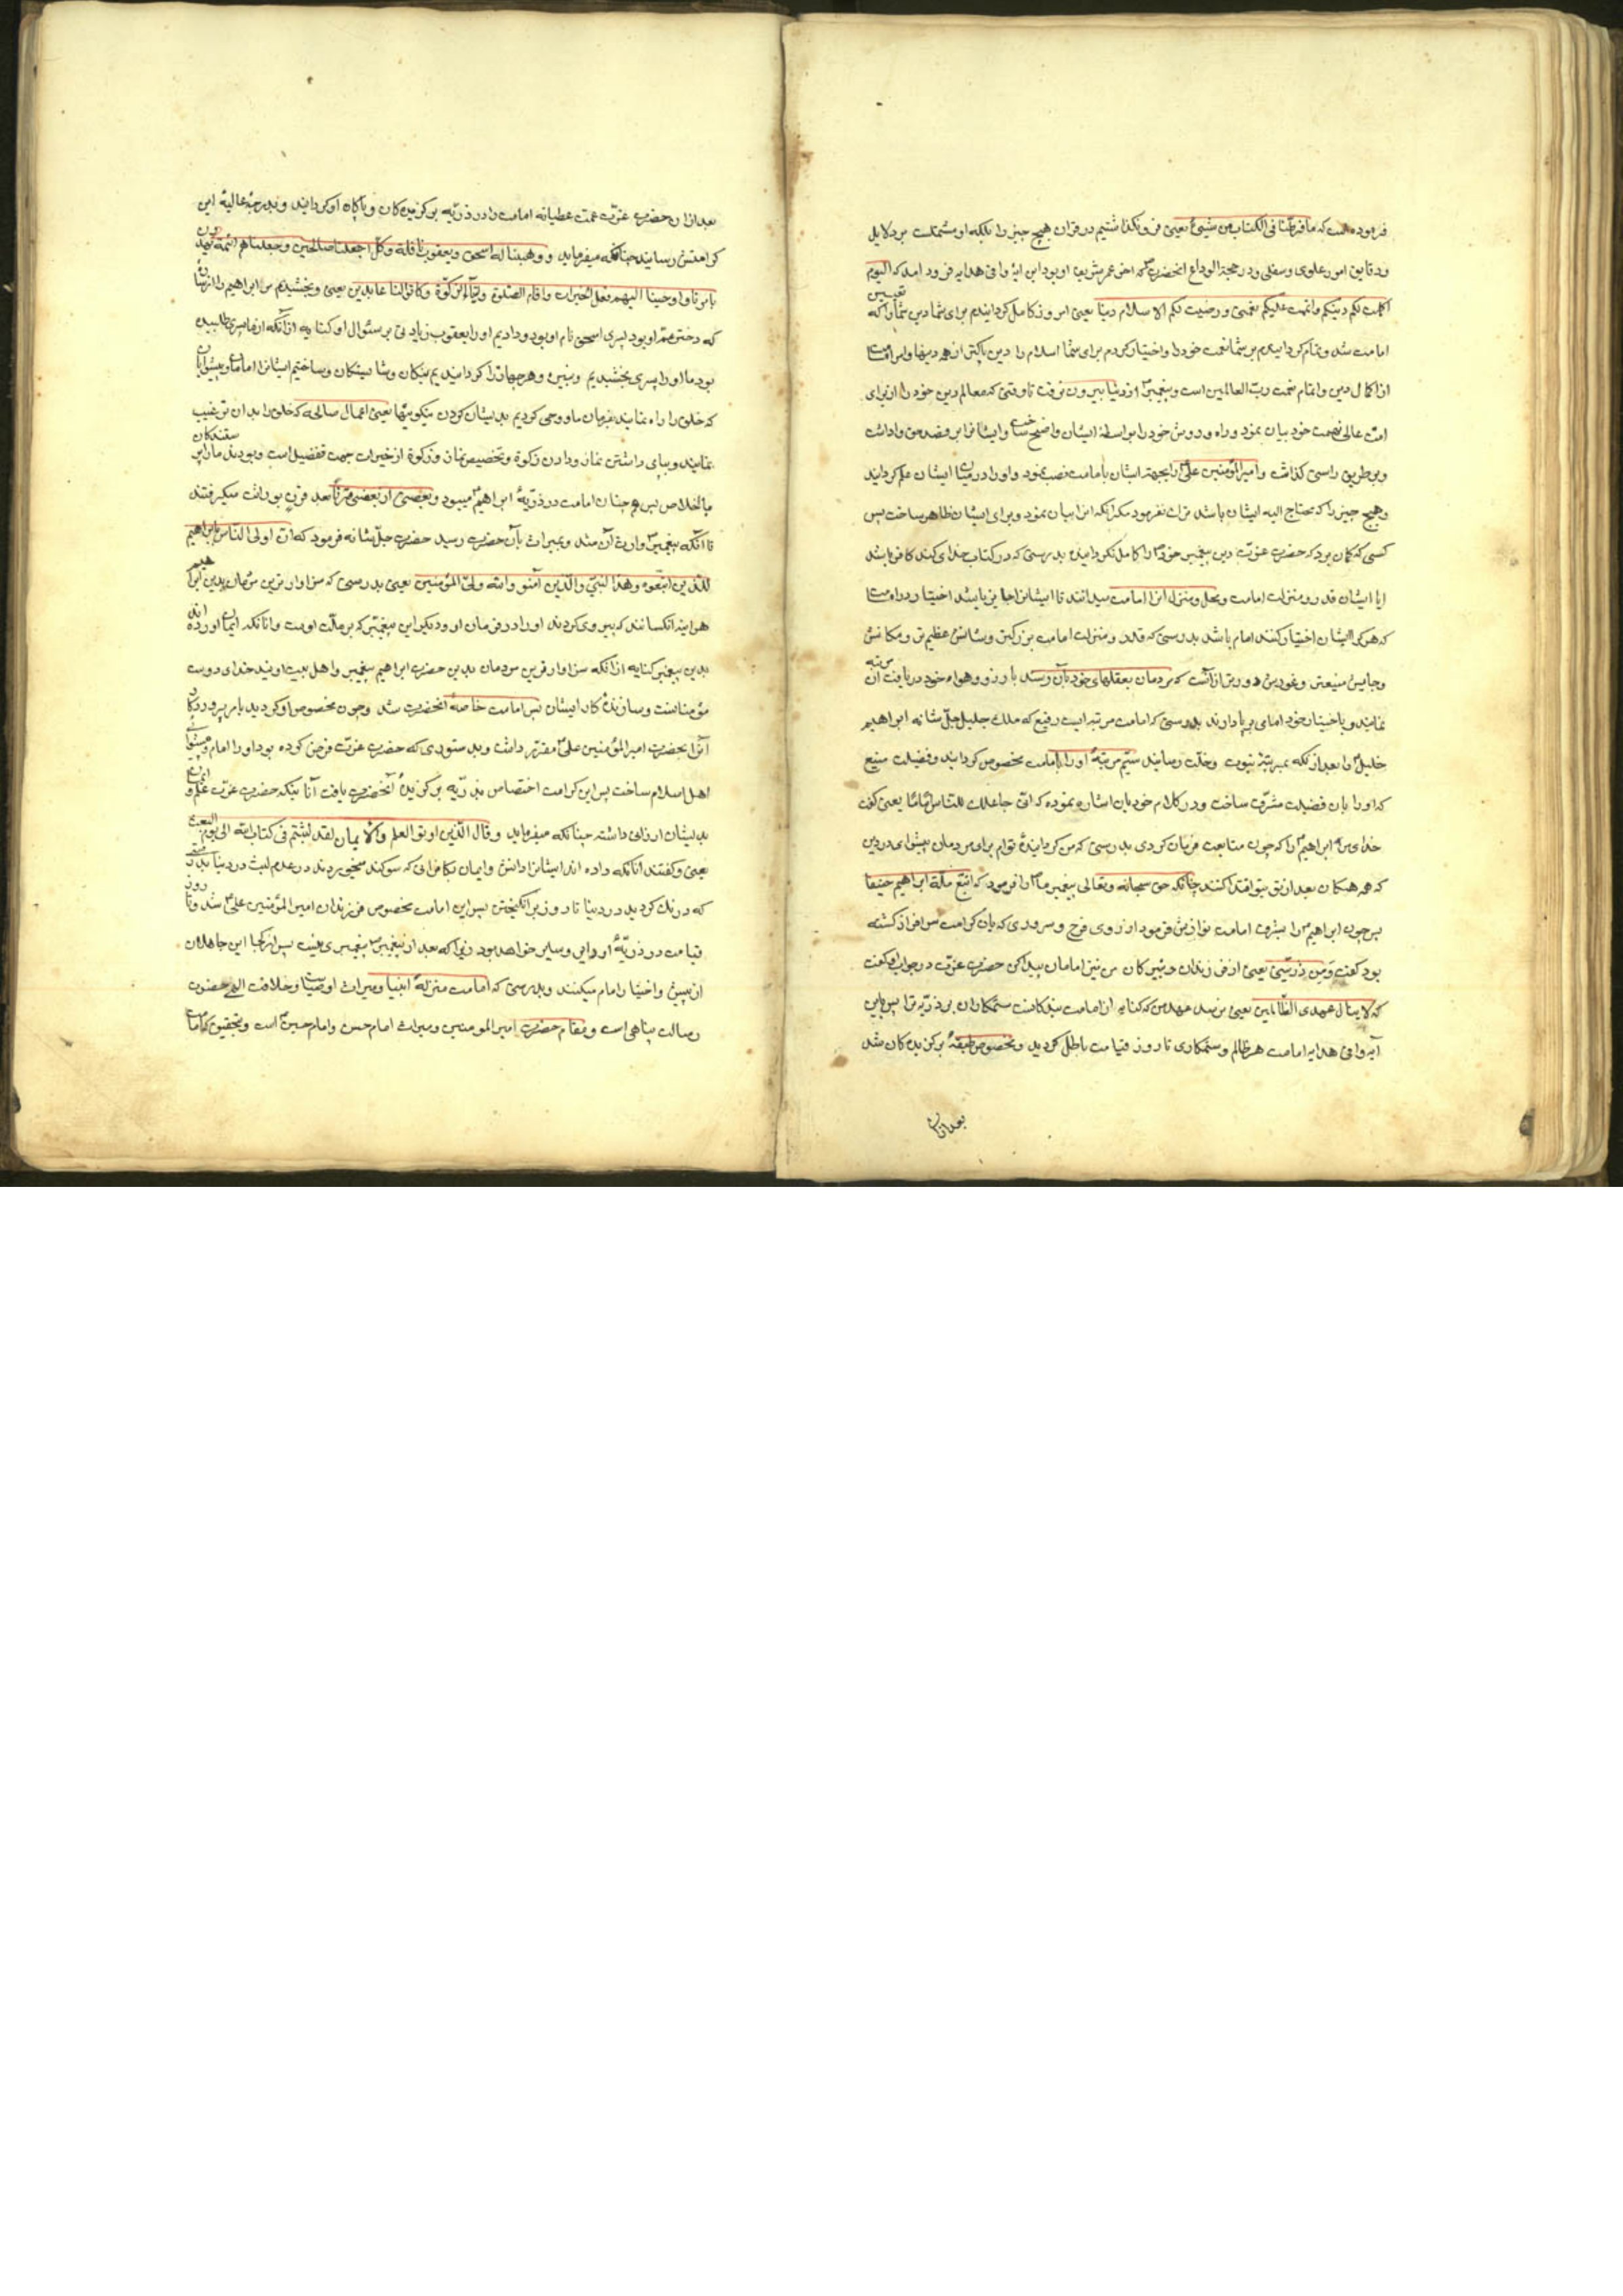 فرموده است که ما فرطنا فی الکتاب من شیئ یعنی فرو نکذاشتیم در قران هیچ چیز را بلکه او مشتملست بر دلایل
و دقایق امور علوی و سفلی و در حجة الوداع انحضرت که اخر عمر شریف او بود این ایۀ وافی هدایه فرود امد که الیوم
اکملت لکم دینکم و اتممت علیکم نعمتی و رضیت لکم الاسلام دینا یعنی امروز کامل کردانیدم برای شما دین شما را که تعیین
امامت شد و تمام کردانیدم بر شما نعمت خود را و اختیار کردم برای شما اسلام را دین پاکتر از همه دینها و امر امامت
از اکمال دین و اتمام نعمت رب العالمین است و پیغمبر از دنیا بیرون نرفت تا وقتی که معالم دین خود را از برای
امت عالی نهمت خود بیان نمود و راه و روش خود را بواسطۀ ایشان واضح ساخت و ایشانرا بر قصد حق واداشت
و بر طریق راستی کذاشت و امیر المؤمنین علی را بجهة ایشان بامامت نصب نمود و او را در میان ایشان علم کردانید
و هیچ چیز را که محتاج الیه ایشان باشد ترک نفرمود مکر انکه انرا بیان نمود و برای ایشان ظاهر ساخت پس
کسی که کمان برد که حضرت عزت دین پیغمبر خود را کامل نکردانیده بدرستی که در کتاب خدای کند کافر باشد
ایا ایشان قدر و منزلت امامت و محل و منزلۀ انرا امامت میدانند تا ایشانرا جایز باشد اختیار در امامت
که هر کرا ایشان اختیار کنند امام باشد بدرستی که قدر و منزلت امامت بزرکتر و شانش عظیم تر و مکانش
و جایش منیعتر و غورش دورتر از آنست که مردمان بعقلهای خود بآن رسند یا بارزو و هواء خود دریافت آن مرتبه
نمایند و یا باختیار خود امامی بر پا دارند بدرستی که امامت مرتبه ایست رفیع که ملک جلیل جل شانه ابراهیم
خلیل را بعد از انکه بمرتبۀ نبوت و خلت رسانید سیم مرتبۀ او را بامامت مخصوص کردانید و فضیلت منیع
که او را بان فضیلت مشرف ساخت و در کلام خود بان اشاره نموده که انی جاعلک للناس اماما یعنی کفت
خدای مر ابراهیم را که چون متابعت فرمان کردی بدرستی که من کردانیدۀ توام برای مردمان پیشوای در دین
که همه همکان بعد از تو بتو اقتدا کنند چنانکه حق سبحانه و تعالی پیغمبر ما را فرمود که اتبع ملة ابراهیم حنیفا
پس چون ابراهیم را بشرف امامت نوازش فرمود از روی فرح و سروری که بان کرامت سرافراز کشته
بود کفت و من ذریتی یعنی از فرزندان و نبیرکان من نیز امامان پیدا کن حضرت عزت در جواب او کفت
که لا ینال عهدی الظالمین یعنی نرسد عهد من که کنایه از امامت بندکانست ستمکاران بر ذریۀ ترا پس باین
آیه وافی هدایه امامت هر ظالم و ستمکاری تا روز قیامت باطل کردید و مخصوص طبقۀ برکزیدکان شد
بعد ازان
بعد ازان حضرت عزت عمت عطیاته امامت را در ذریه برکزیدکان و پاکان او کردانید و بدرجۀ عالیۀ این
کرامتش رسانید چنانکه میفرماید و وهبنا له اسحق و یعقوب نافلة و کلا جعلنا صالحین و جعلناهم ائمة یهدون
بامرنا و اوحینا الیهم فعل الخیرات و اقام الصلوة و ایتاء الزکوة و کانوا لنا عابدین یعنی و بخشیدیم مر ابراهیم را از
که دختر عم او بود پسری اسحق نام او بود و دادیم او را یعقوب زیادتی بر سئوال او کنایه ازانکه از ما پسری طلبیده
بود ما او را پسری بخشیدیم و نبیرۀ و هر چهار را کردانیدیم نیکان و شایستکان و ساختیم ایشانرا امامان و پیشوایان
که خلق را راه نمایند بفرمان ما و وحی کردیم بدیشان کردن نیکوئیها یعنی اعمال صالحه که خلق را بدان ترغیب
نمایند و بپای داشتن نماز و دادن زکوة و تخصیص نماز و زکوة از خیرات جهت تفضیل است و بودند ما را پرستندکان
باخلاص پس همچنان امامت در ذریۀ ابراهیم میبود و بعضی از بعضی قرنا بعد قرن بوراثت میکرفتند
تا انکه پیغمبر وارث آن شد و بمیراث بآن حضرت رسید حضرت جل شانه فرمود که ان اولی الناس بابراهیم
للذین اتبعوه و هذا النبی و الذین آمنو و الله ولی المؤمنین یعنی بدرستی که سزاوارترین مردمان بدین ابراهیم
هراینه انکسانند که پیروی کردند او را در فرمان او و دیکر این پیغمبر که بر ملت اوست و انانکه ایمان اورده اند
بدین پیغمبر کنایه ازانکه سزاوارترین مردمان بدین حضرت ابراهیم پیغمبر و اهل بیت اویند خدای دوست
مؤمنانست و سازندۀ کار ایشان پس امامت خاصۀ انحضرت شد و چون مخصوص او کردید بامر پروردکار
آنرا بحضرت امیر المؤمنین علی مقرر داشت و بدستوری که حضرت عزت فرض کرده بود او را امام و پیشوای
اهل اسلام ساخت پس این کرامت اختصاص بذریه برکزیدۀ آنحضرت یافت آنانیکه حضرت عزت علم و ایمان
بدیشان ارزانی داشته چنانکه میفرماید و قال الذین اوتو العلم و الایمان لقد لبثتم فی کتاب الله الی یوم البعث
یعنی و کفتند انانکه داده اند ایشانرا دانش و ایمان بکافرانی که سوکند میخوردند در عدم لبث در دنیا بدرستی
که درنک کردید در دنیا تا روز برانکیختن پس این امامت مخصوص فرزندان امیر المؤمنین علی شد و تا روز
قیامت در ذریۀ او دایر و سایر خواهد بود زیرا که بعد از پیغمبر پیغمبری نیست پس از کجا این جاهلان
از پیش و اختیار امام میکنند و بدرستی که امامت منزلۀ انبیا و میراث اوصیاست و خلافت الهی حضرت
رسالت پناهی است و مقام حضرت امیر المومنین و میراث امام حسن و امام حسین است و بتحقیق که امامت